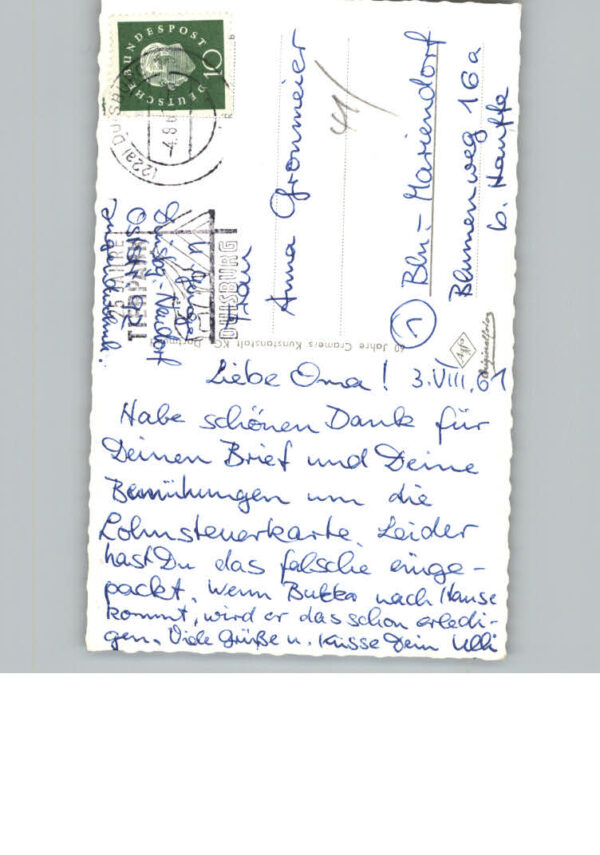 Liebe Oma! 3.VIII.61
Habe schönen Dank für
Deinen Brief und Deine
Bemühungen um die
Lohnsteuerkarte. Leider
hast Du das falsche einge-
packt. Wenn Butka nach Hause
kommt, wird er das schon erledi-
gen. Viele Grüße u. Küsse Dein Ulli
Frau
Anna Gronmeier
① Bln-Mariendorf
Blumenweg 16a
b. Hauffe
41/
60 Jahre Cramers Kunstanstalt KG, Dortmund
Originalfoto
DEUTSCHE BUNDESPOST
10
(22a) DUISBURG
-4.8.6
25 JAHRE
TIERPARK
DUISBURG
Duisbg-Neudorf